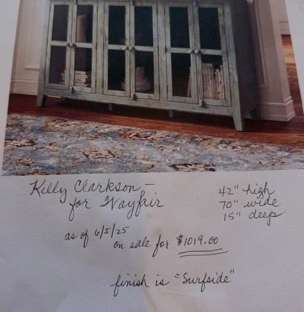 Kelly Clarkson –
for Wayfair
42" high
70" wide
15" deep
as of 6/5/25
on sale for $1019.00
finish is "Surfside"